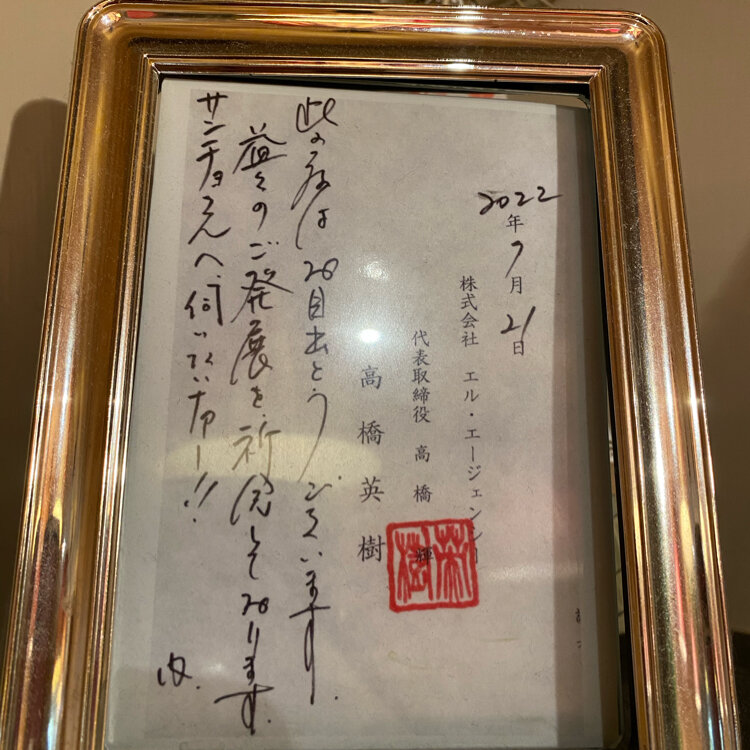 2022年7月21日
株式会社 エル・エージェンシー
代表取締役 高橋 輝
高橋英樹
英樹
此の度はお目出とうございます
益々のご発展を祈念しております。
サンチョさんへ、伺いたいナァー!!